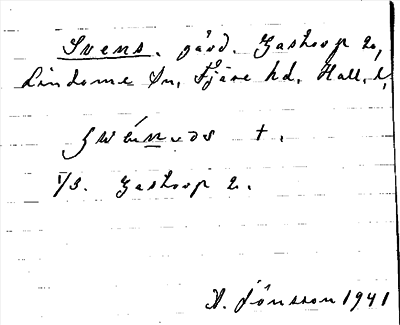 Svens, gård. Gastorp 2,
Lindome sn, Fjäre hd. Hall. l,
†.
1/3. Gastorp 2.
D. Jönsson 1941